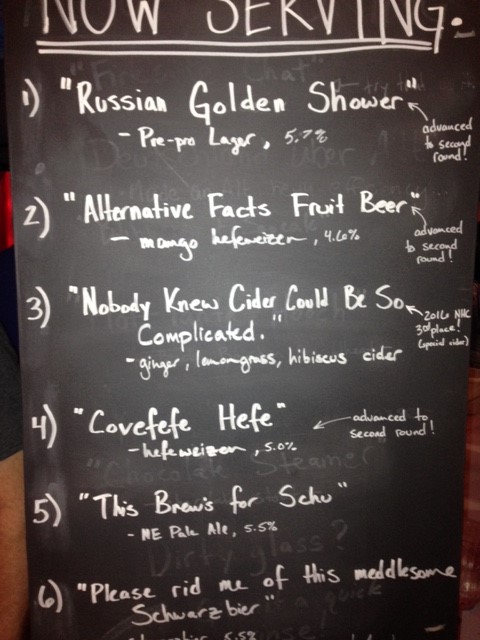 NOW SERVING.
1) "Russian Golden Shower"
- Pre-pro Lager, 5.7%
advanced
to second
round!
2) "Alternative Facts Fruit Beer"
- mango hefeweizen, 4.6%
advanced
to second
round!
3) "Nobody Knew Cider Could Be So
Complicated."
- ginger, lemongrass, hibiscus cider
2016 NHC
3rd place!
(special cider)
4) "Covefefe Hefe"
- hefeweizen, 5.0%
advanced to
second round!
5) "This Brew's for Schu"
- NE Pale Ale, 5.5%
6) "Please rid me of this meddlesome
Schwarzbier"
5.5%